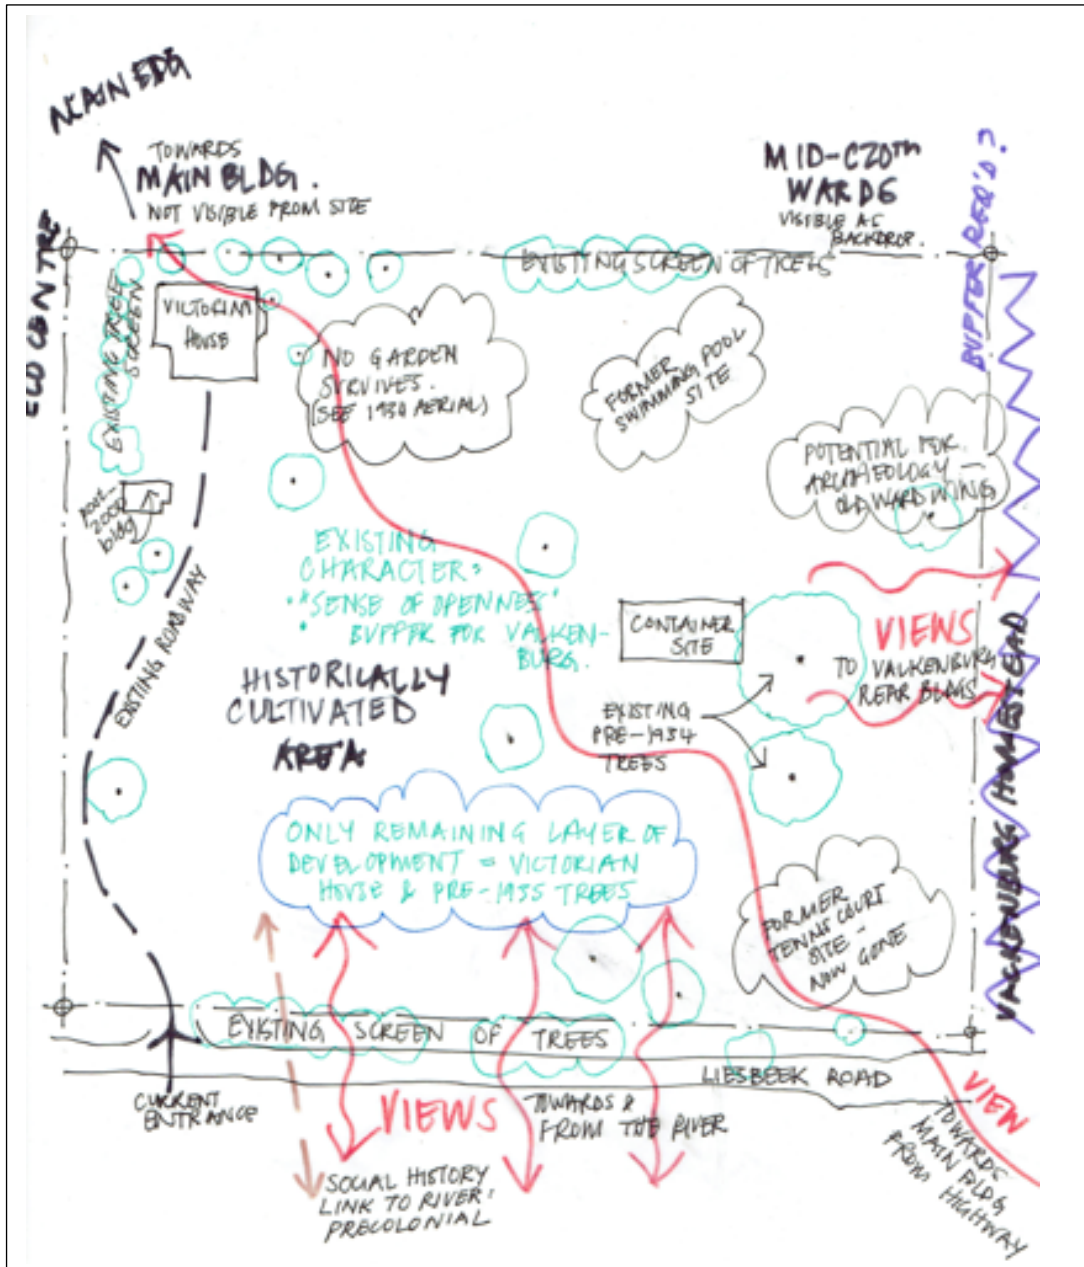 MAIN BDG
TOWARDS
MAIN BLDG.
NOT VISIBLE FROM SITE
MID-C20TH
WARDS
VISIBLE AS
BACKDROP.
BUFFER REQ'D?
ELD CENTRE
EXISTING TREE
SCREEN
EXISTING SCREEN OF TREES
VICTORIAN
HOUSE
NO GARDEN
SURVIVES.
(SEE 1934 AERIAL)
FORMER
SWIMMING POOL
SITE
POTENTIAL FOR
ARCHAEOLOGY —
OLD WARD WING
POST-
2000
bldg
EXISTING
CHARACTER:
• "SENSE OF OPENNESS"
• BUFFER FOR VALKEN-
BURG.
EXISTING ROADWAY
CONTAINER
SITE
VIEWS
TO VALKENBURG
REAR BLDGS
HISTORICALLY
CULTIVATED
AREA
EXISTING
PRE-1934
TREES
VALKENBURG HOMESTEAD
ONLY REMAINING LAYER OF
DEVELOPMENT = VICTORIAN
HOUSE & PRE-1935 TREES
FORMER
TENNIS COURT
SITE -
NOW GONE
EXISTING SCREEN OF TREES
LIESBEEK ROAD
CURRENT
ENTRANCE
VIEWS
TOWARDS &
FROM THE RIVER
VIEW
TOWARDS
MAIN BLDG
FROM HIGHWAY
SOCIAL HISTORY
LINK TO RIVER:
PRECOLONIAL